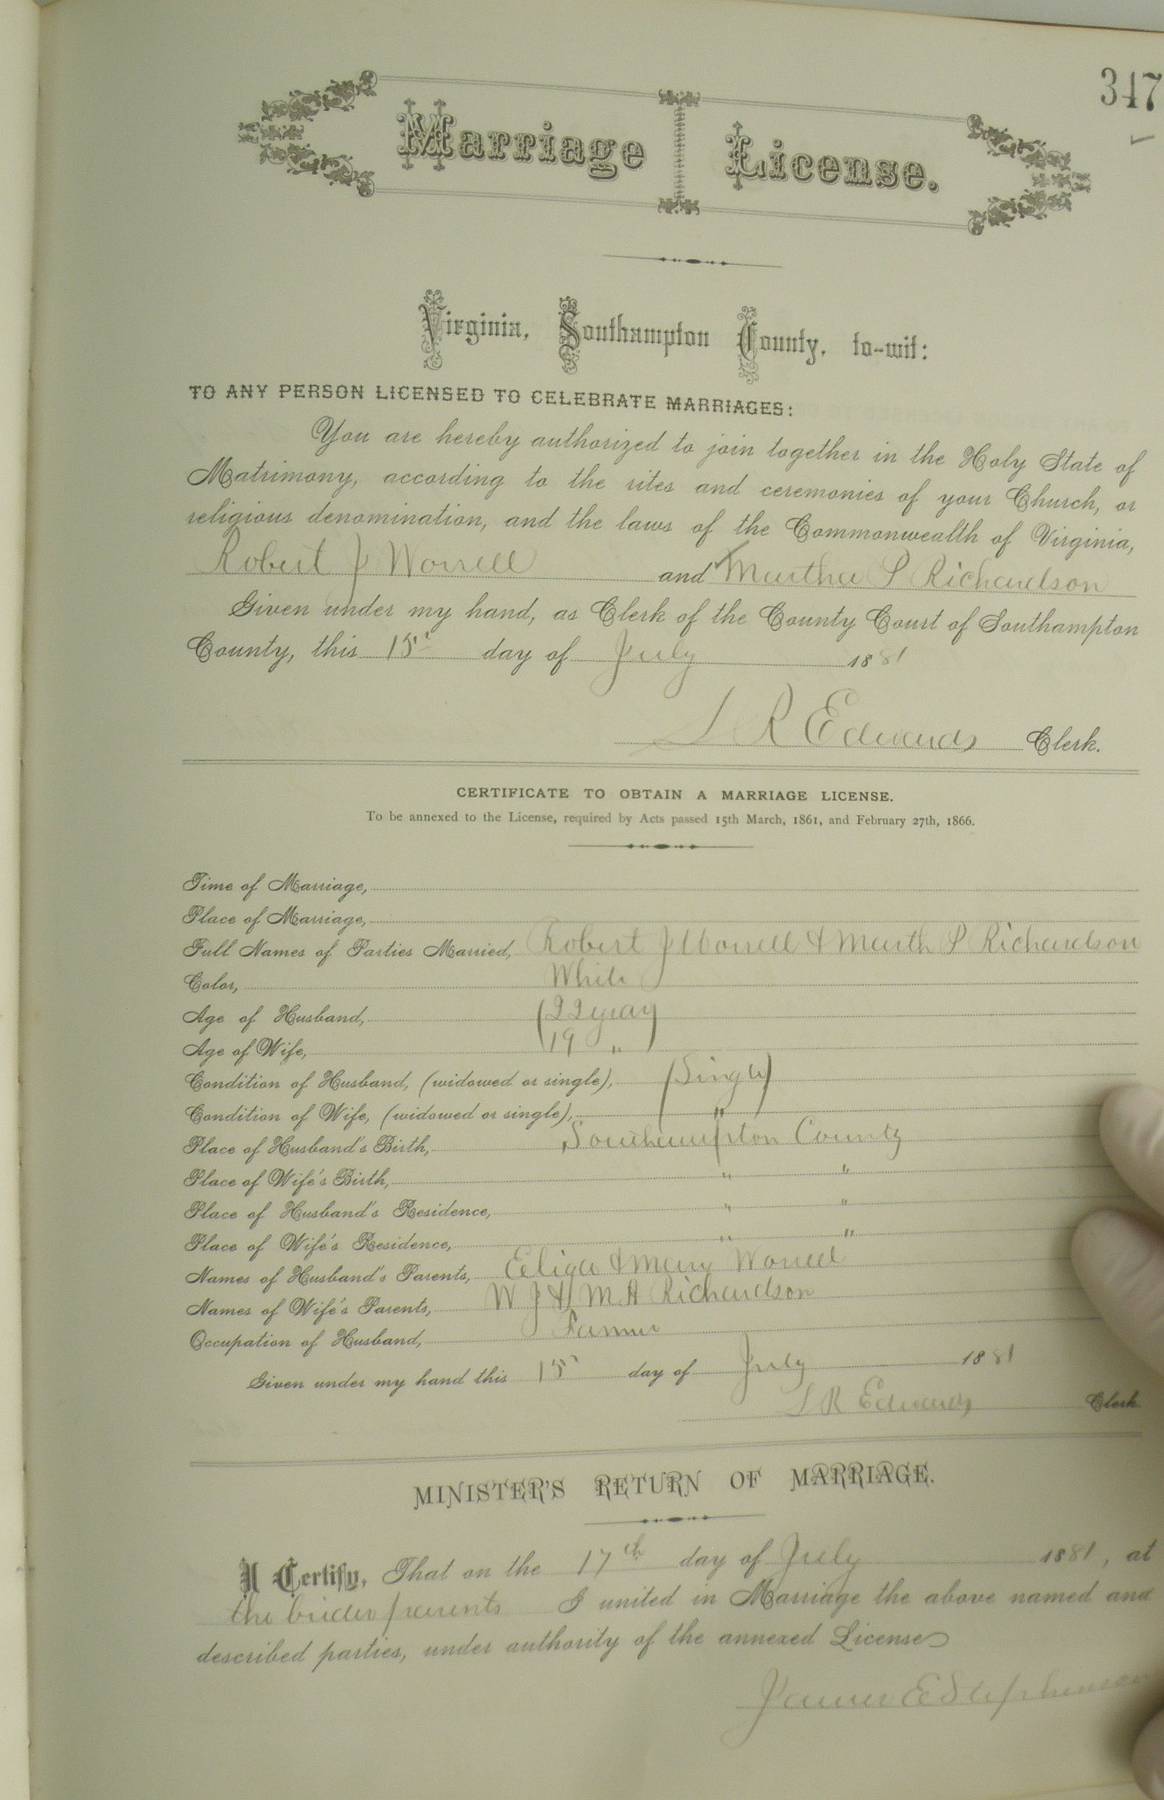 347
Marriage License.
Virginia, Southampton County, to-wit:
TO ANY PERSON LICENSED TO CELEBRATE MARRIAGES:
You are hereby authorized to join together in the Holy State of
Matrimony, according to the rites and ceremonies of your Church, or
religious denomination, and the laws of the Commonwealth of Virginia,
Robert J Worrell and Martha P Richardson
Given under my hand, as Clerk of the County Court of Southampton
County, this 15" day of July 1881
L R Edwards Clerk.
CERTIFICATE TO OBTAIN A MARRIAGE LICENSE.
To be annexed to the License, required by Acts passed 15th March, 1861, and February 27th, 1866.
Time of Marriage,
Place of Marriage,
Full Names of Parties Married, Robert J Worrell & Marth P Richardson
Color, White
Age of Husband, 22 year
Age of Wife, 19 "
Condition of Husband, (widowed or single), Single
Condition of Wife, (widowed or single), "
Place of Husband's Birth, Southampton County
Place of Wife's Birth, " "
Place of Husband's Residence, " "
Place of Wife's Residence, " "
Names of Husband's Parents, & Mary Worrell
Names of Wife's Parents, W J & M A Richardson
Occupation of Husband, Farmer
Given under my hand this 15" day of July 1881
L R Edwards Clerk
MINISTER'S RETURN OF MARRIAGE.
I Certify, That on the 17th day of July 1881, at
the brides parents I united in Marriage the above named and
described parties, under authority of the annexed License
James E Stephenson